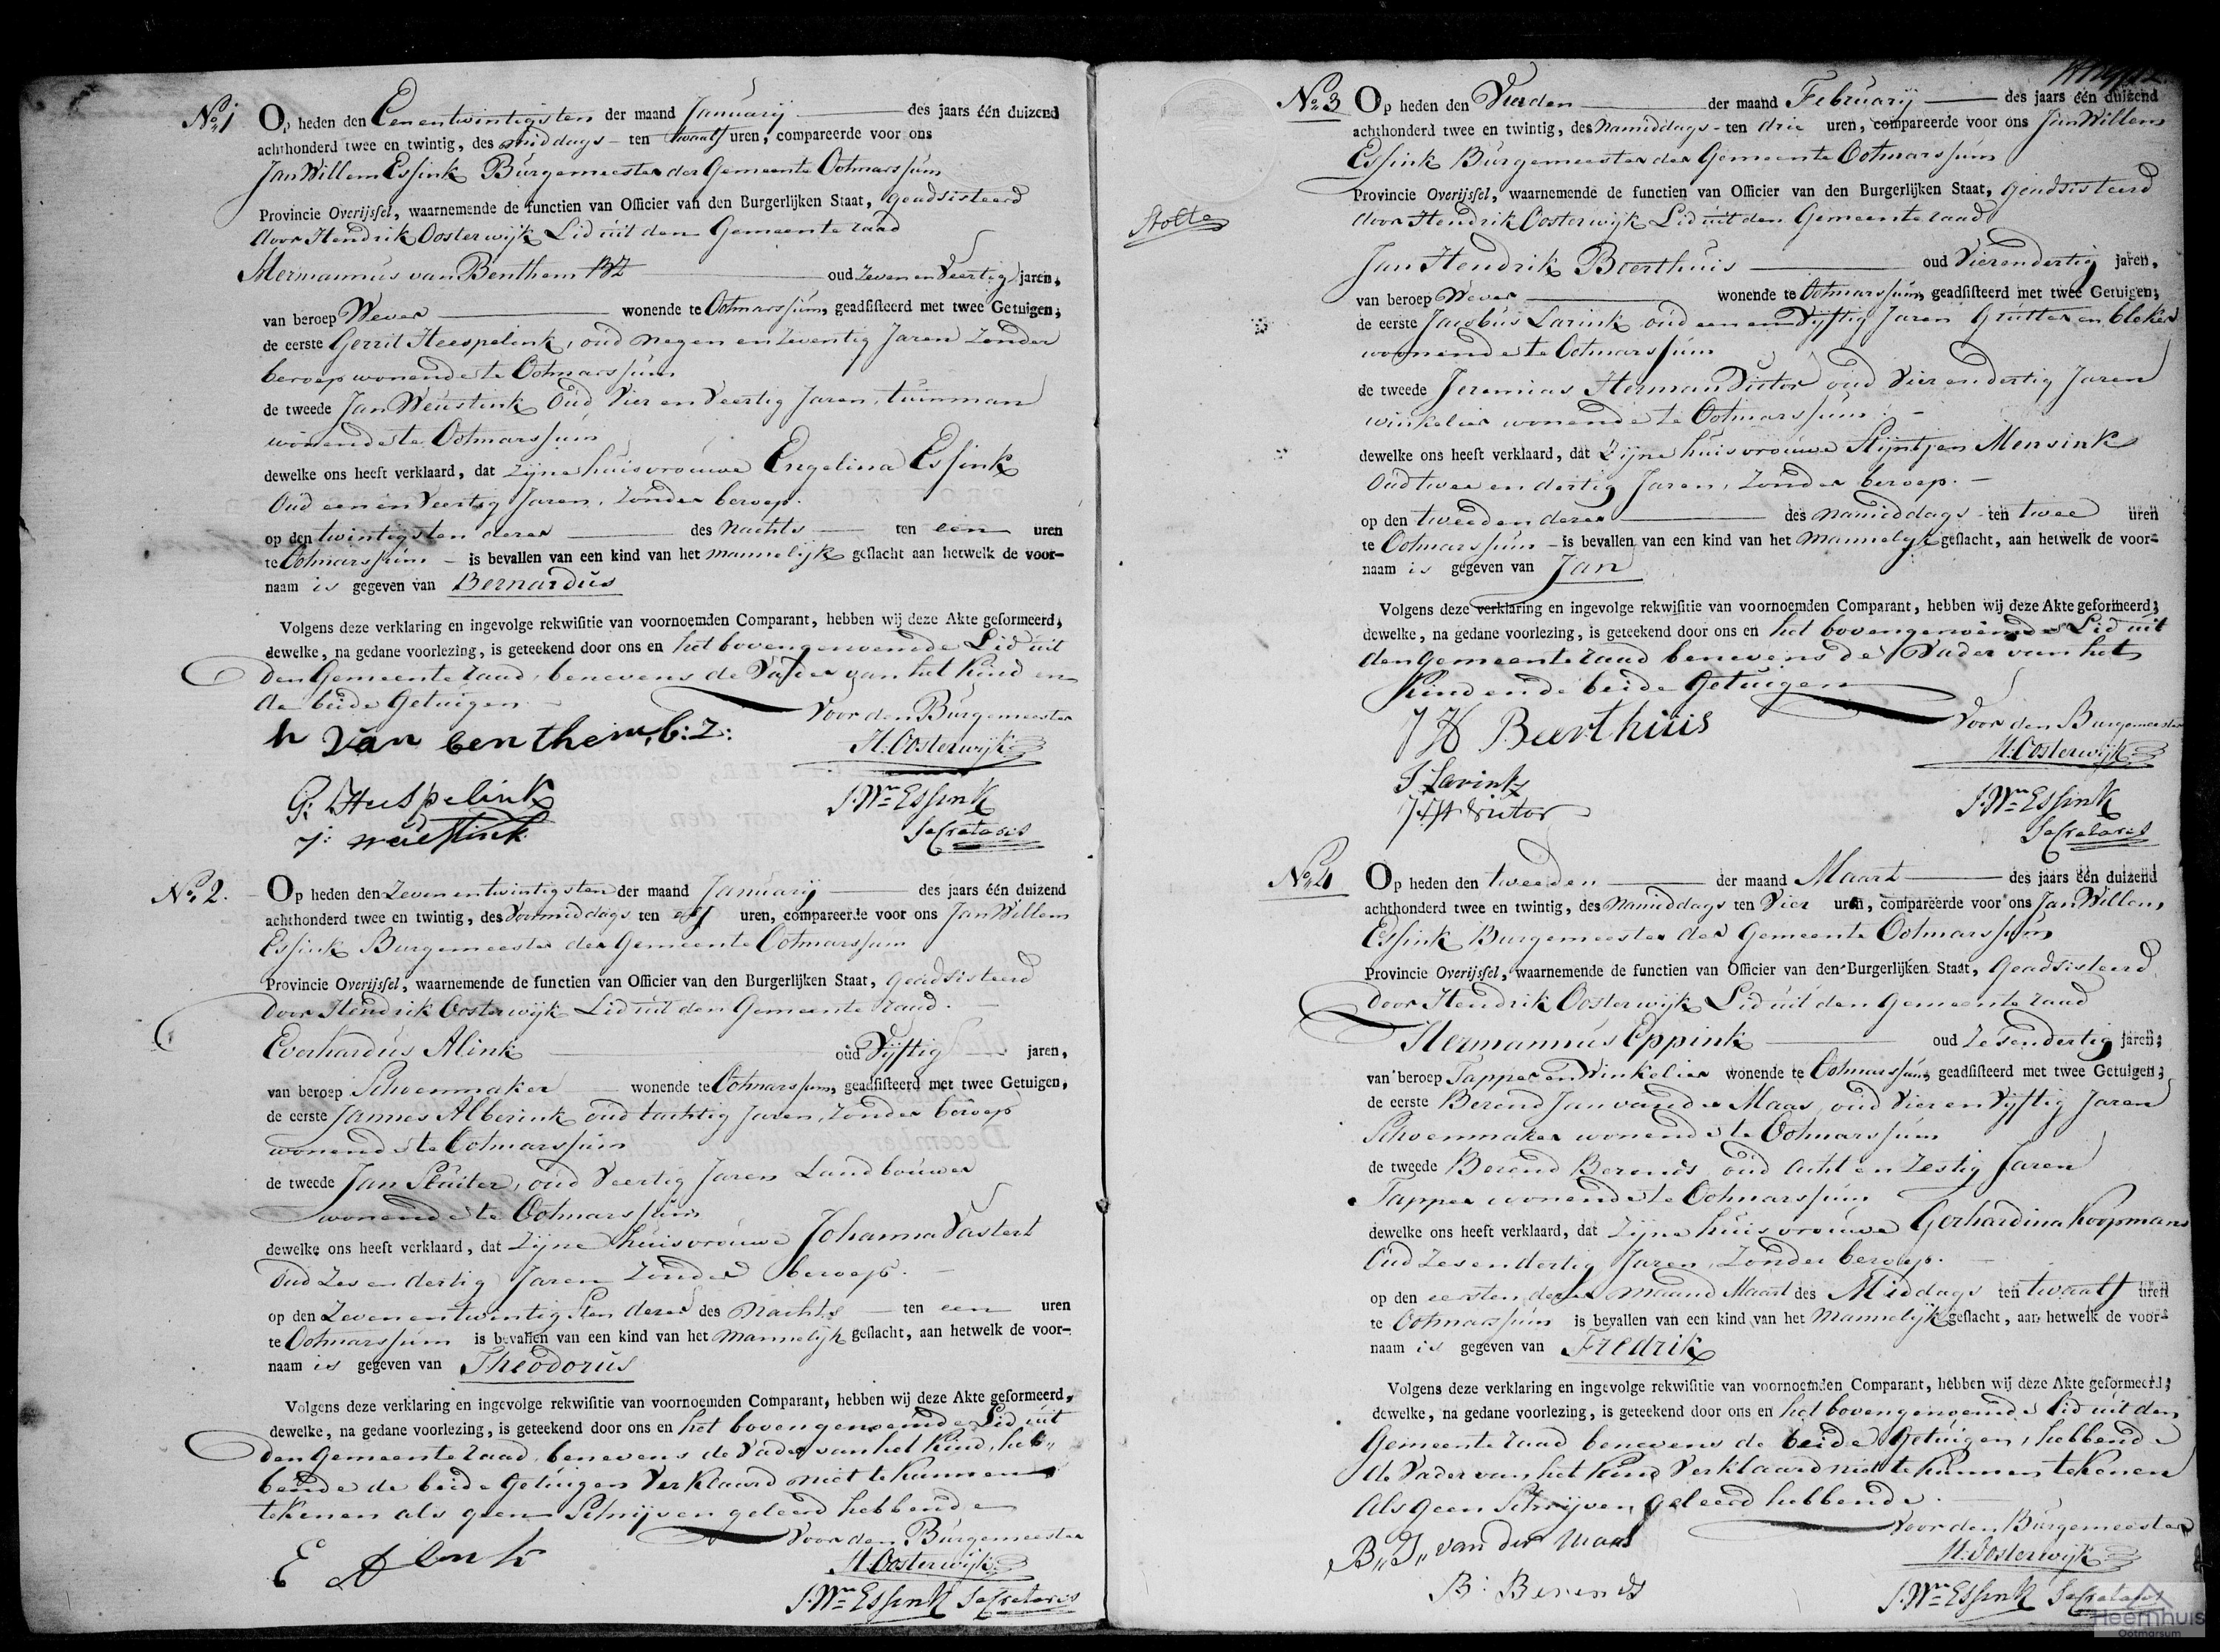 No. 1 Op heden den Eenentwintigsten der maand Januarij des jaars één duizend
achthonderd twee en twintig, des middags ten twaalf uren, compareerde voor ons
Jan Willem Essink Burgemeester der Gemeente Ootmarssum
Provincie Overijssel, waarnemende de functien van Officier van den Burgerlijken Staat, geadsisteerd
door Hendrik Oosterwijk Lid uit den Gemeente raad
Hermannus van Benthem BZ oud zeven en Veertig jaren,
van beroep Wever wonende te Ootmarssum, geadsisteerd met twee Getuigen;
de eerste Gerrit Heespelink, oud negen en zeventig Jaren zonder
beroep wonende te Ootmarssum
de tweede Jan Weustink oud Vier en Veertig Jaren, tuinman
wonende te Ootmarssum
dewelke ons heeft verklaard, dat zijne huisvrouwe Engelina Essink
Oud een en Veertig Jaren, zonder beroep.
op den twintigsten dezer des Nachts ten een uren
te Ootmarssum is bevallen van een kind van het mannelijk geslacht aan hetwelk de voor-
naam is gegeven van Bernardus
Volgens deze verklaring en ingevolge rekwisitie van voornoemden Comparant, hebben wij deze Akte geformeerd,
dewelke, na gedane voorlezing, is geteekend door ons en het bovengenoemde Lid uit
den Gemeente raad, benevens de Vader van het Kind en
de beide Getuigen
Voor den Burgemeester
h van benthem, b:z:
H. Oosterwijk
G: Heespelink
J. Wm Essink
Secretaris
J: weustink
No. 2. Op heden den Zevenentwintigsten der maand Januarij des jaars één duizend
achthonderd twee en twintig, des Voormiddags ten elf uren, compareerde voor ons Jan Willem
Essink Burgemeester der Gemeente Ootmarssum
Provincie Overijssel, waarnemende de functien van Officier van den Burgerlijken Staat, geadsisteerd
door Hendrik Oosterwijk Lid uit den Gemeente raad.
Everhardus Alink oud Vijftig jaren,
van beroep Schoenmaker wonende te Ootmarssum, geadsisteerd met twee Getuigen,
de eerste Jannes Alberink oud tachtig Jaren, zonder beroep
wonende te Ootmarssum
de tweede Jan Sluiter, oud Veertig Jaren Landbouwer
wonende te Ootmarssum
dewelke ons heeft verklaard, dat zijne huisvrouwe Johanna Vastert
Oud Zes en dertig Jaren zonder beroep.
op den Zevenentwintigsten dezer des nachts ten een uren
te Ootmarssum is bevallen van een kind van het Mannelijk geslacht, aan hetwelk de voor-
naam is gegeven van Theodorus
Volgens deze verklaring en ingevolge rekwisitie van voornoemden Comparant, hebben wij deze Akte geformeerd,
dewelke, na gedane voorlezing, is geteekend door ons en het bovengenoemde Lid uit
den Gemeente raad, benevens de Vader van het Kind, heb„
bende de beide Getuigen Verklaard niet te kunnen
tekenen als geen Schrijven geleerd hebbende
Voor den Burgemeester
E Alink
H. Oosterwijk
J. Wm Essink Secretaris
No. 3 Op heden den Vierden der maand Februarij des jaars één duizend
achthonderd twee en twintig, des Namiddags ten drie uren, compareerde voor ons Jan Willem
Essink Burgemeester der Gemeente Ootmarssum
Provincie Overijssel, waarnemende de functien van Officier van den Burgerlijken Staat, geadsisteerd
door Hendrik Oosterwijk Lid uit den Gemeente raad
Stolte
Jan Hendrik Beerthuis oud Vierendertig jaren,
van beroep Wever wonende te Ootmarssum, geadsisteerd met twee Getuigen;
de eerste Jacobus Larink oud een en Vijftig Jaren Grutter en bleker
woonende te Ootmarssum
de tweede Jeremias Herman Victor oud Vier en dertig Jaren
winkelier wonende te Ootmarssum.
dewelke ons heeft verklaard, dat Zijne huisvrouwe Stijntjen Mensink
Oud twee en dertig Jaren, zonder beroep.
op den tweeden dezer des namiddags ten twee uren
te Ootmarssum is bevallen van een kind van het Mannelijk geslacht, aan hetwelk de voor-
naam is gegeven van Jan
Volgens deze verklaring en ingevolge rekwisitie van voornoemden Comparant, hebben wij deze Akte geformeerd;
dewelke, na gedane voorlezing, is geteekend door ons en het bovengenoemde Lid uit
den Gemeente raad benevens de Vader van het
Kind en de beide Getuigen
Voor den Burgemeester
J H Beerthuis
H. Oosterwijk
J Larink
J. Wm Essink
J H Victor
Secretaris
No. 4 Op heden den tweeden der maand Maart des jaars één duizend
achthonderd twee en twintig, des Namiddags ten Vier uren, compareerde voor ons Jan Willem
Essink Burgemeester der Gemeente Ootmarssum
Provincie Overijssel, waarnemende de functien van Officier van den Burgerlijken Staat, geadsisteerd
door Hendrik Oosterwijk Lid uit den Gemeente raad
Hermannus Eppink oud Zesendertig jaren;
van beroep Tapper en Winkelier wonende te Ootmarssum, geadsisteerd met twee Getuigen;
de eerste Berend Jan van der Maas, oud Vier en Vijftig Jaren
Schoenmaker wonende te Ootmarssum
de tweede Berend Berends oud acht en Zestig Jaren
Tapper wonende te Ootmarssum
dewelke ons heeft verklaard, dat zijne huisvrouwe Gerhardina Koopmans
Oud Zesendertig Jaren, zonder beroep.
op den eersten dezer maand Maart des Middags ten twaalf uren
te Ootmarssum is bevallen van een kind van het Mannelijk geslacht, aan hetwelk de voor-
naam is gegeven van Fredrik
Volgens deze verklaring en ingevolge rekwisitie van voornoemden Comparant, hebben wij deze Akte geformeerd;
dewelke, na gedane voorlezing, is geteekend door ons en het bovengenoemde Lid uit den
Gemeente raad benevens de beide Getuigen, hebbende
de Vader van het Kind Verklaard niet te kunnen tekenen
als geen Schrijven geleerd hebbende.
Voor den Burgemeester
B„J„ van der Maas
H. Oosterwijk
B: Berends
J. Wm Essink Secretaris
Heemhuis
Ootmarsum